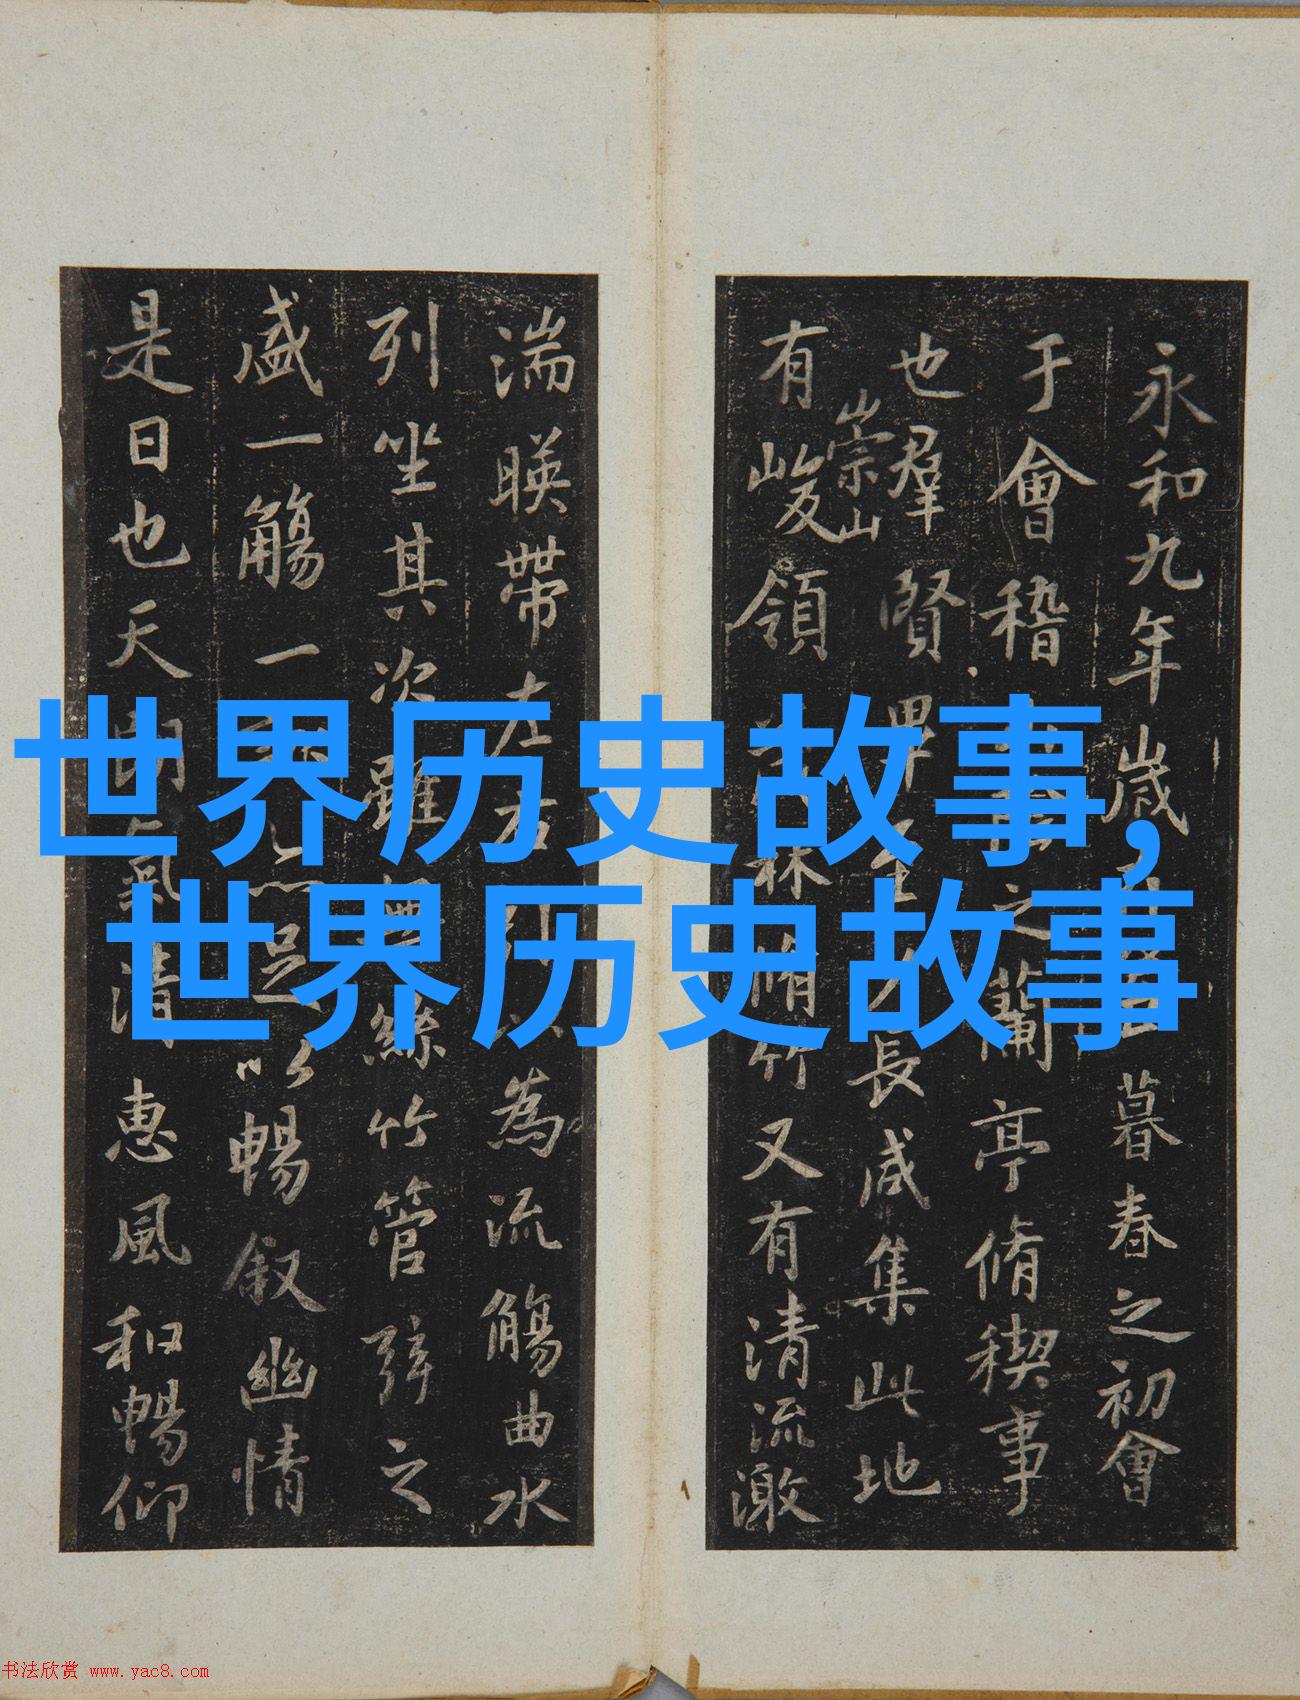 永和九年歲暮春之初會
于會稽之蘭亭脩稧事
也羣賢畢至長咸集此地
有崇山峻領林脩竹又有清流激
湍暎帶左右引以為流觴曲水
列坐其次雖無絲竹管弦之
盛一觴一足以暢叙幽情
是日也天朗氣清惠風和暢仰
世界历史故事,
世界历史故事
书法欣赏 www.yac8.com